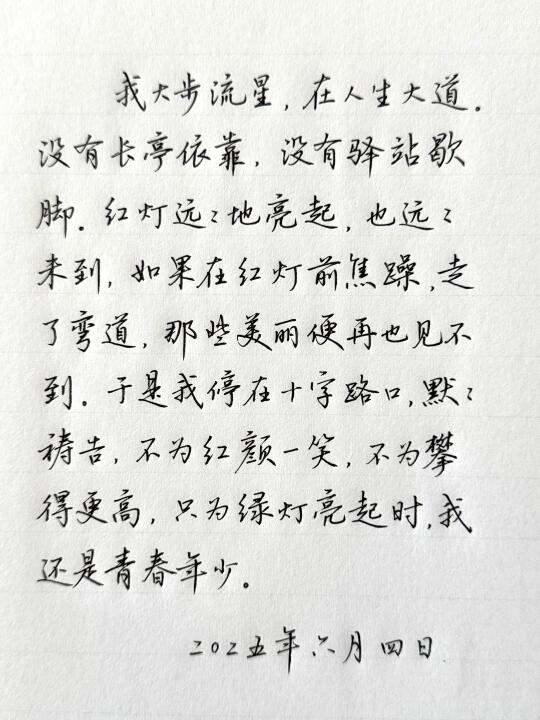 我大步流星，在人生大道。
没有长亭依靠，没有驿站歇
脚。红灯远〻地亮起，也远〻
未到，如果在红灯前焦躁，走
了弯道，那些美丽便再也见不
到。于是我停在十字路口，默〻
祷告，不为红颜一笑，不为攀
得更高，只为绿灯亮起时，我
还是青春年少。
2025五年六月四日